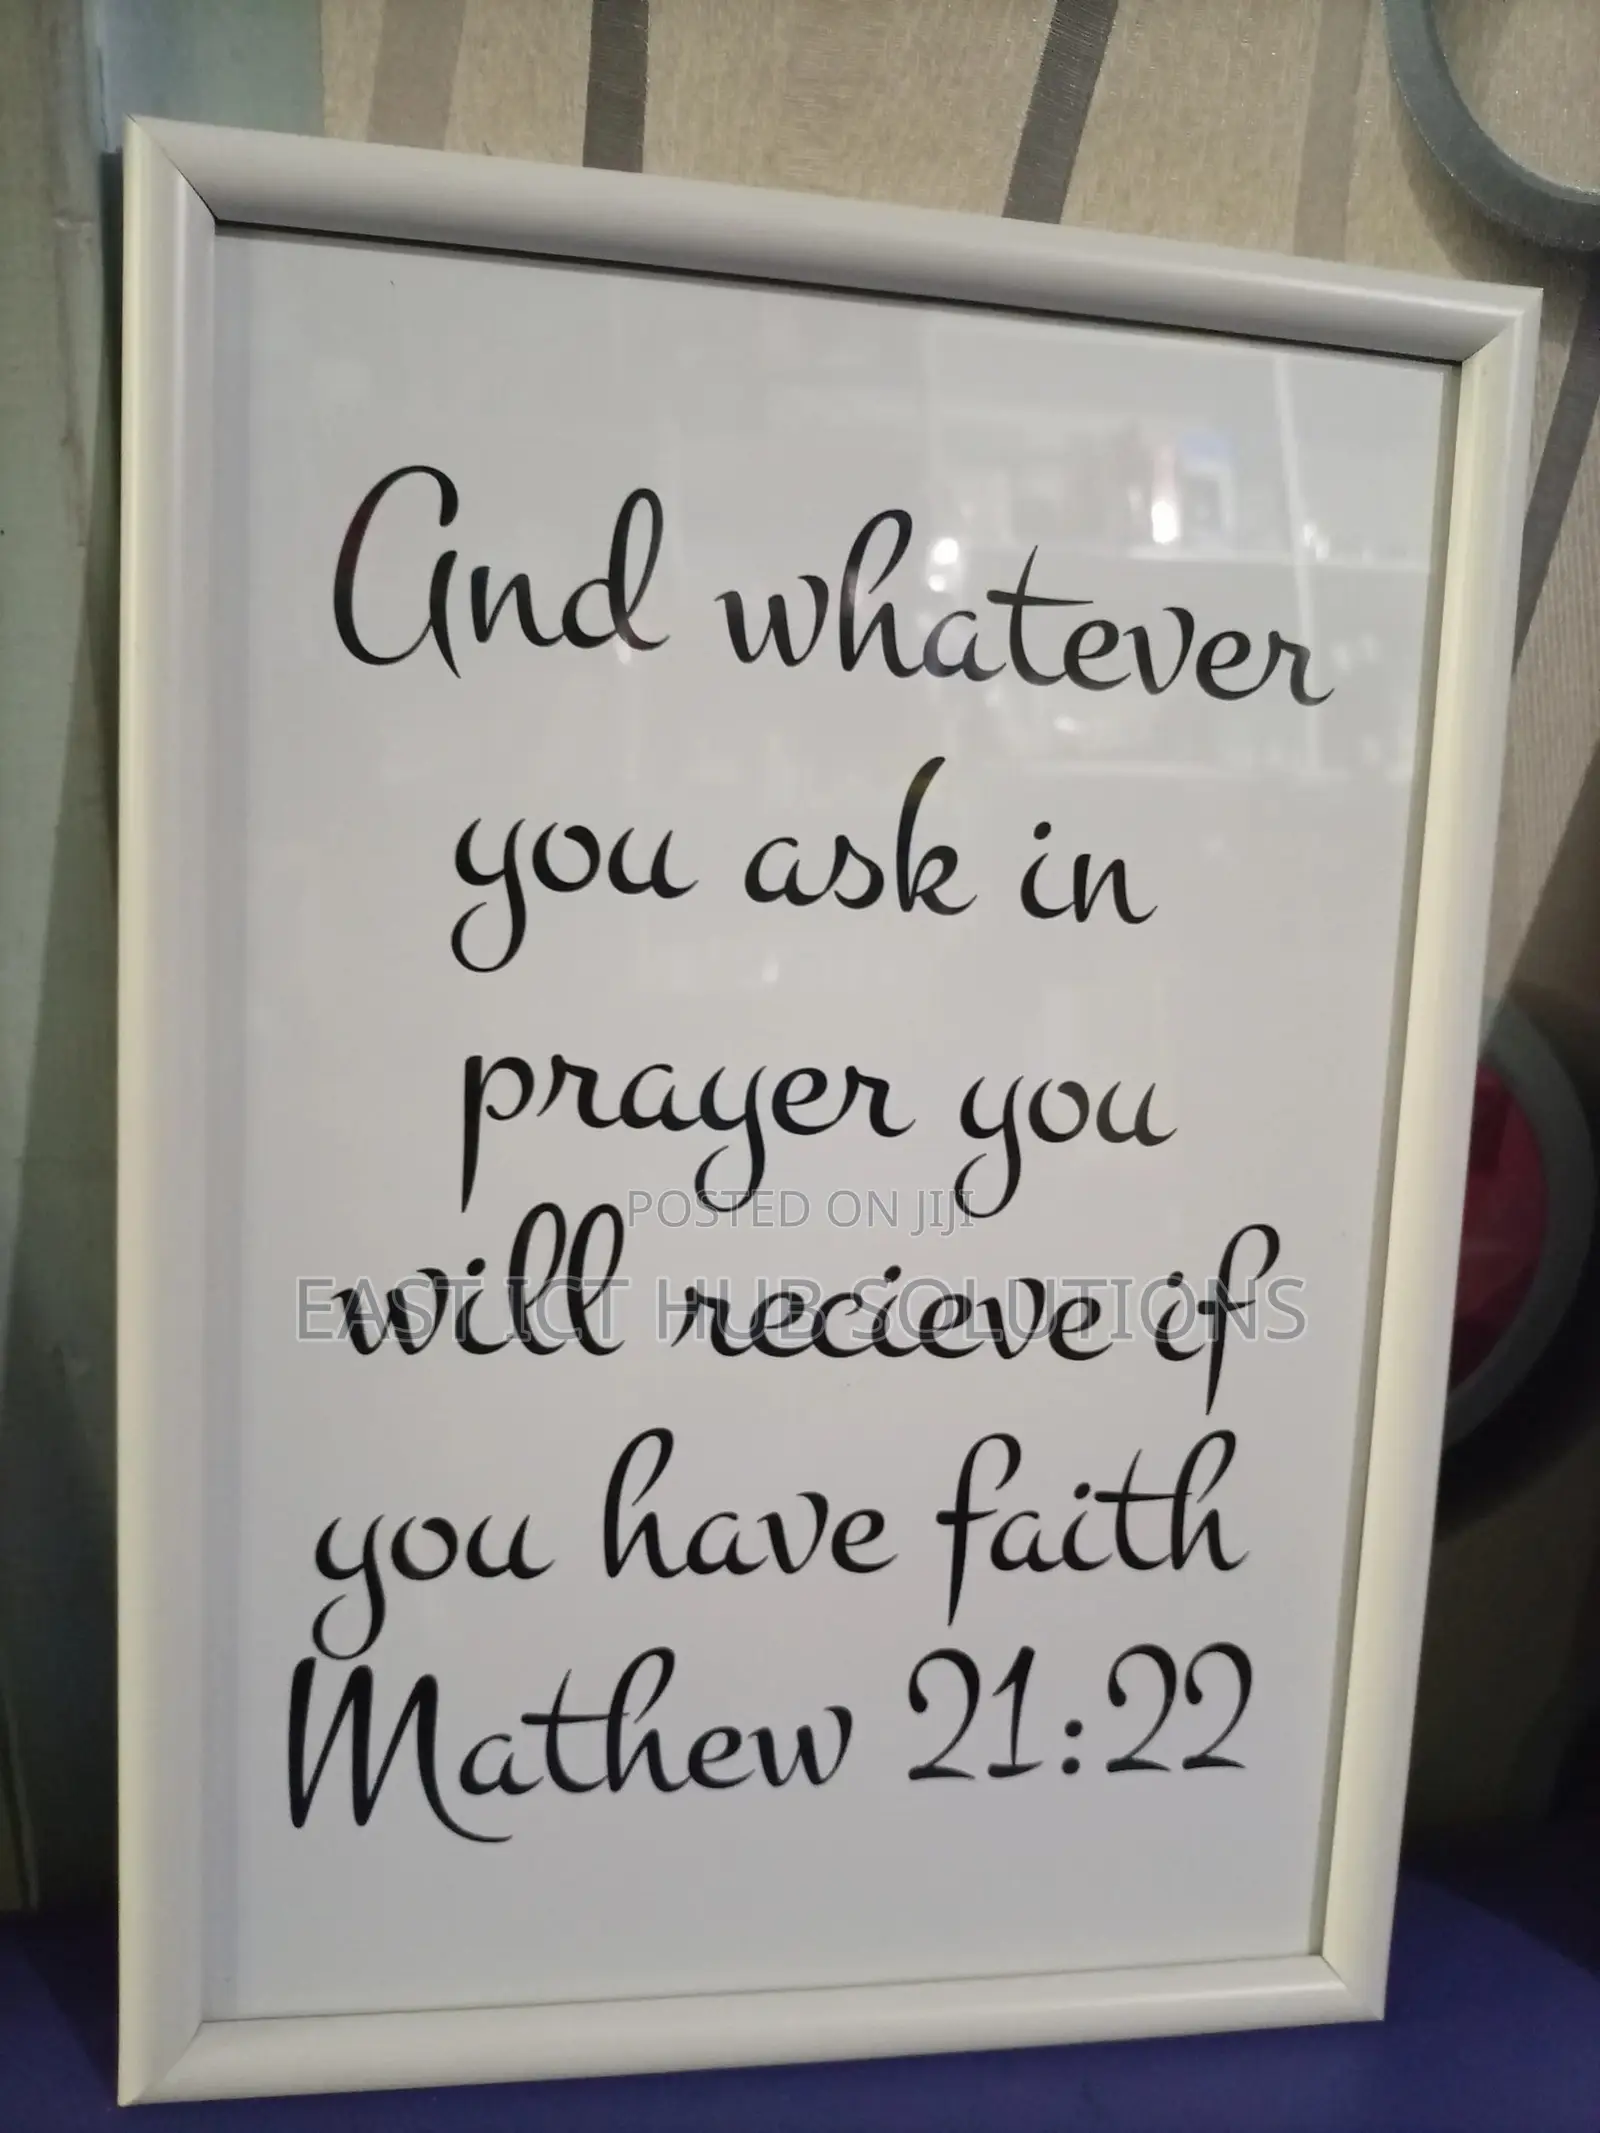 And whatever
you ask in
prayer you
POSTED ON JIJI
will recieve if
EAST ICT HUB SOLUTIONS
you have faith
Mathew 21:22